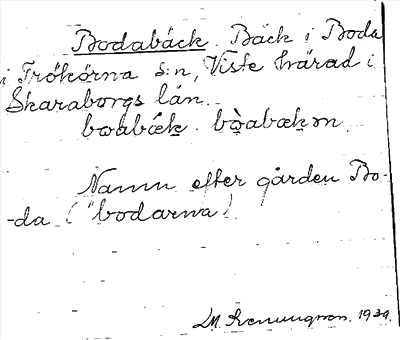 Bodabäck. Bäck i Boda
i Trökörna s:n, Viste härad i
Skaraborgs län.
boabǽk. bòabækən.
Namn efter gården Bo-
-da ("bodarna).
1939.